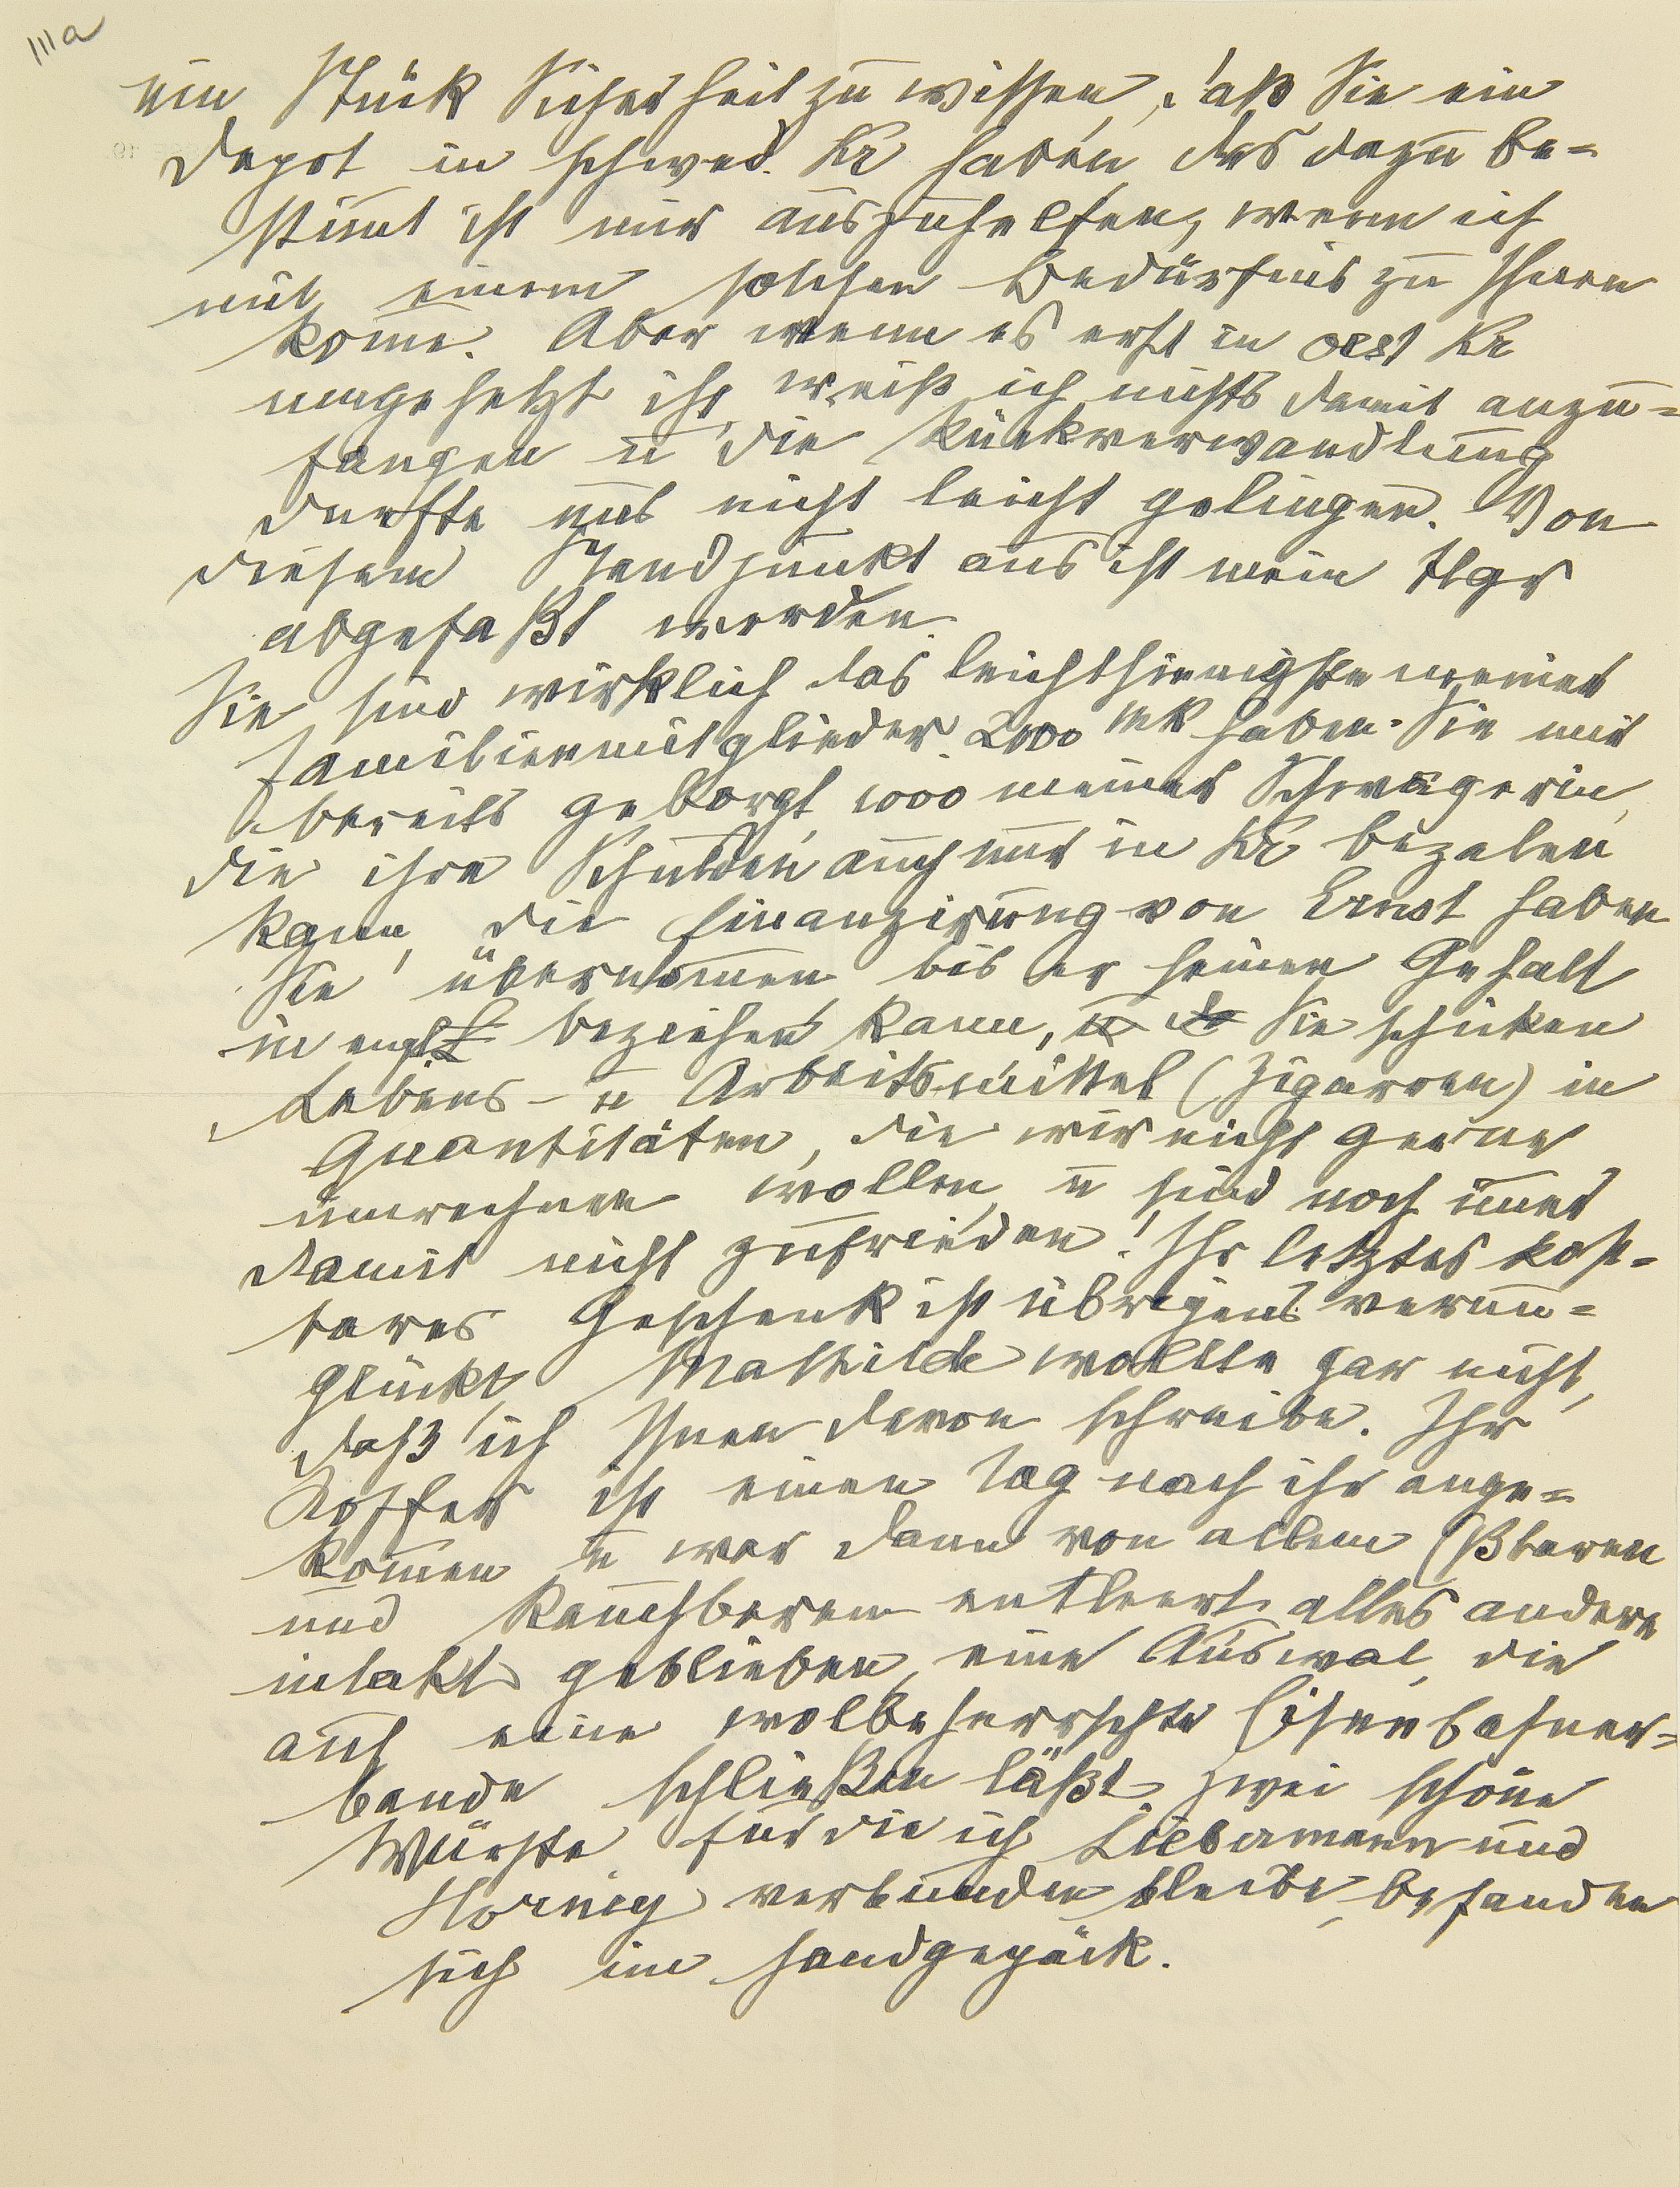 IIIa
ein Stück Sicherheit zu wissen, daß Sie ein
Depot in schwed. Kr haben das dazu be-
stimmt ist mir auszuhelfen, wenn ich
mit einem solchen Bedürfnis zu Ihnen
kom̄e. Aber wenn es erst in oest Kr
umgesetzt ist, weiß ich nichts damit anzu-
fangen u die Rückverwandlung
durfte uns nicht leicht gelingen. Von
diesem Standpunkt aus ist mein Tlgr
abgefaßt worden.
Sie sind wirklich das leichtsinnigste meiner
Familienmitglieder. 2000 Mk haben Sie mir
bereits geborgt, 1000 meiner Schwägerin,
die ihre Schulden auch nur in Kr bezalen
kann, die Finanzirung von Ernst haben
Sie übernom̄en bis er seinen Gehalt
in engl. £ beziehen kann, Sie schicken
Lebens- u Arbeitsmittel (Zigarren) in
Quantitäten, die wir nicht gerne
umrechnen wollen, u sind noch im̄er
damit nicht zufrieden! Ihr letztes kost-
bares Geschenk ist übrigens verun-
glückt, Mathilde wollte gar nicht,
daß ich Ihnen davon schreibe. Ihr
Koffer ist einen Tag nach ihr ange-
kom̄en u war dann von allem Eßbaren
und Rauchbaren entleert, alles andere
intakt geblieben, eine Auswal, die
auf eine wolbeherrschte Eisenbahner-
bande schließen läßt. Zwei schöne
Würste für die ich Liebermann und
verbunden bleibe, befanden
sich im Handgepäck.